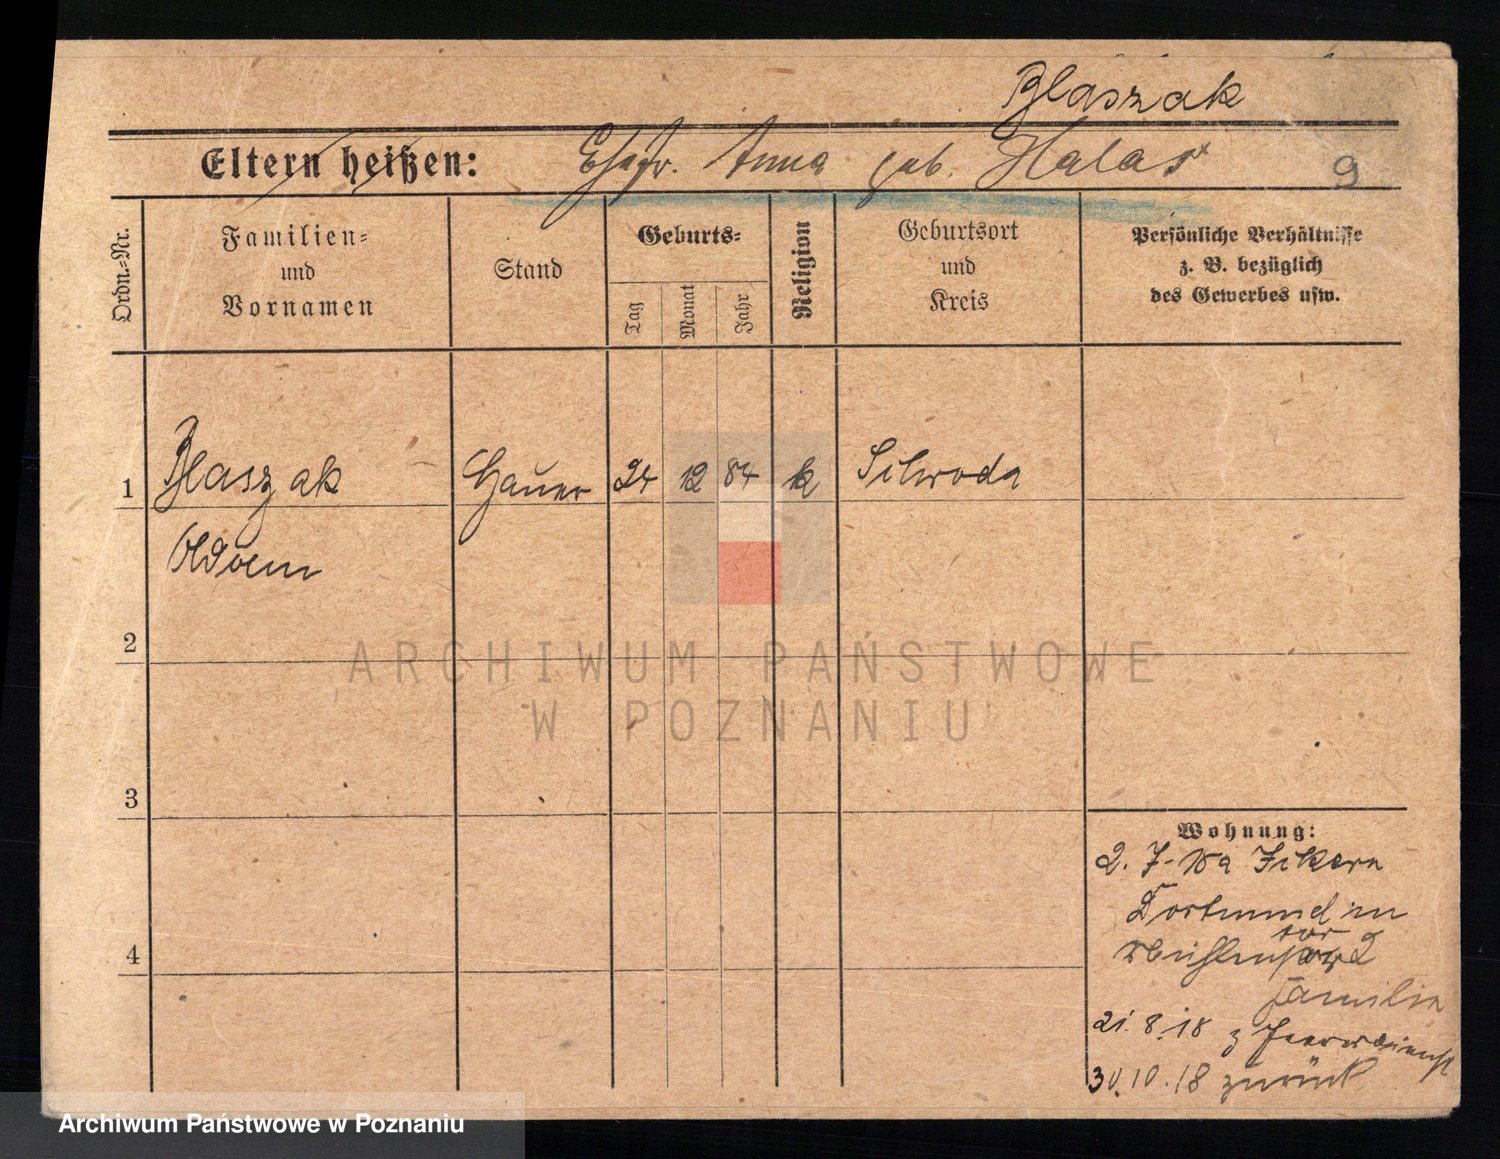 Blaszak
Eltern heißen: Ehefr. Anna geb. Halas
9
Ordn.=Nr.
Familien=
und
Vornamen
Stand
Geburts=
Tag
Monat
Jahr
Religion
Geburtsort
und
Kreis
Persönliche Verhältnisse
z. B. bezüglich
des Gewerbes usw.
1 Blaszak Hauer 24 12 84 k
Adam
2
3
4
ARCHIWUM PAŃSTWOWE
W POZNANIU
Wohnung:
Ickern
Dortmund
tor
2
Familie
21.8.18 z Heeresdienst
30.10.18 zurück
Archiwum Państwowe w Poznaniu